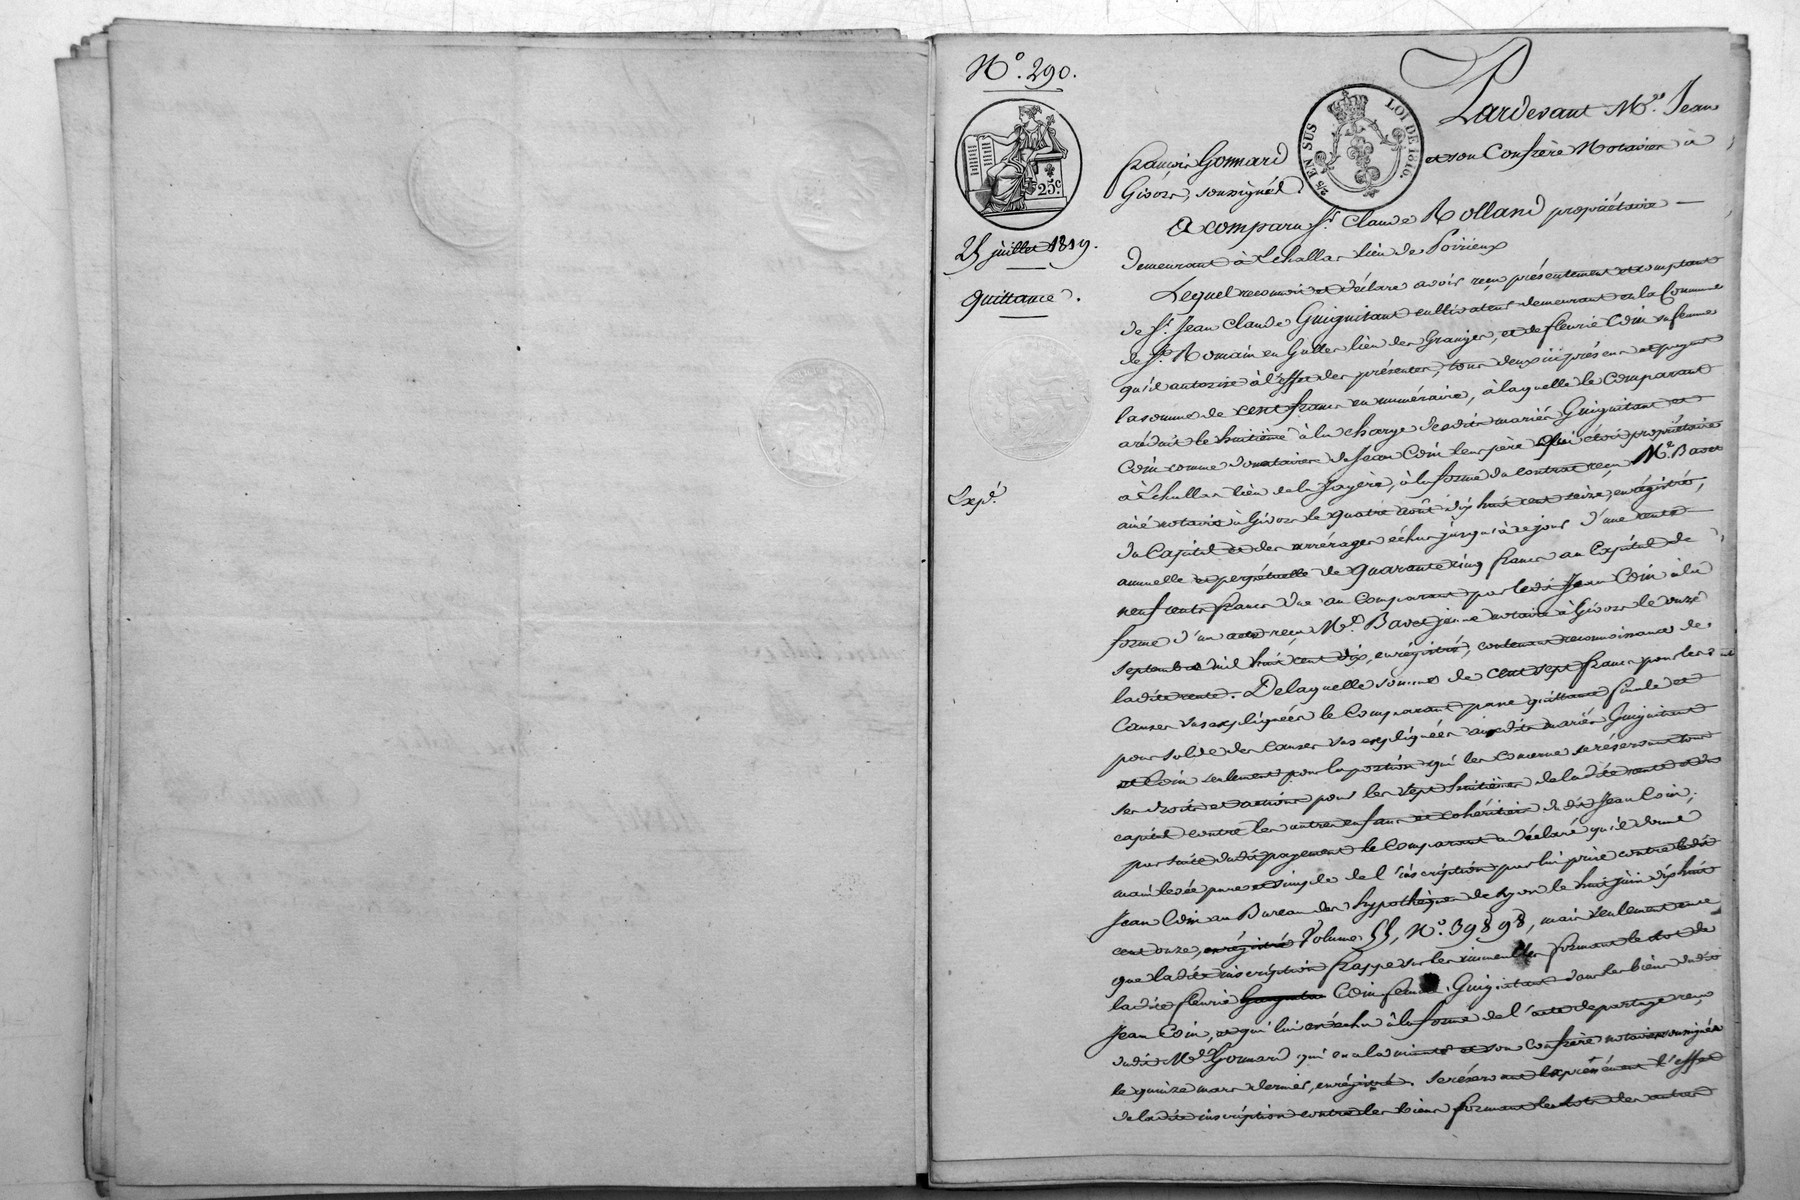 N.° 290.
25 juillet 1819.
quittance.
Expé.
25c
2/5 EN SUS
LOI DE 1816.
Pardevant M.e Jean
françois Gonnard et son Confrère Notaires à
Givors, soussignés.
A comparu S.r Claude Rolland propriétaire
demeurant à Echallas lieu de Poirieux
Lequel reconnoit et déclare avoir reçu présentement et comptant
de S.r Jean Claude Guiguitant cultivateur demeurant en la Commune
de S.t Romain en Galles lieu des Granges, et de fleurie Coin sa femme
qu'il autorise à l'effet des présentes, tous deux ici présens et payant
la somme de cent francs en numéraire, à laquelle le Comparant
a réduit le huitième à la charge desdits mariés Guiguitant et
Coin comme donataires de Jean Coin leur père qui étoit propriétaire
à Echallas lieu de la Jayère, à la forme du contrat reçu M.e Bavet
ainé notaire à Givors le quatre août dix huit cent seize, enrégistré,
du Capital et des arrérages échus jusqu'à ce jour d'une rente
annuelle et perpétuelle de quarante cinq francs au Capital de
neuf cents francs due au Comparant par ledit Jean Coin à la
forme d'un acte reçu M.e Bavet jeune notaire à Givors le onze
septembre mil huit cent dix, enrégistré, contenant reconnoissance de
ladite rente. De laquelle somme de cent sept francs pour les
Causes susexpliquées le Comparant passe quittance finale et
pour solde des Causes susexpliquées auxdits mariés Guiguitant
et Coin seulement pour la portion qui les concerne se réservant tous
ses droits et actions pour les sept huitièmes de ladite rente et du
capital contre les autres enfans et cohéritiers dudit Jean Coin;
par suite dudit payement le Comparant a déclaré qu'il donne
main levée pure et simple de l'inscription par lui prise contre ledit
Jean Coin au Bureau des hypothèques de Lyon le huit juin dix huit
cent onze, enrégistré Volume 55, N.° 39898, mais seulement en ce
que ladite inscription frappe sur les immeubles formant le lot de
ladite fleurie Coin femme Guiguitant dans les biens dudit
Jean Coin, et qui lui est échu à la forme de l'acte de partage reçu
dudit M.e Gonnard qui en a la minute et son confrère notaires soussignés
le quinze mars dernier, enrégistré. Se réservant expressément l'effet
de ladite inscription contre les biens formant les lots des autres